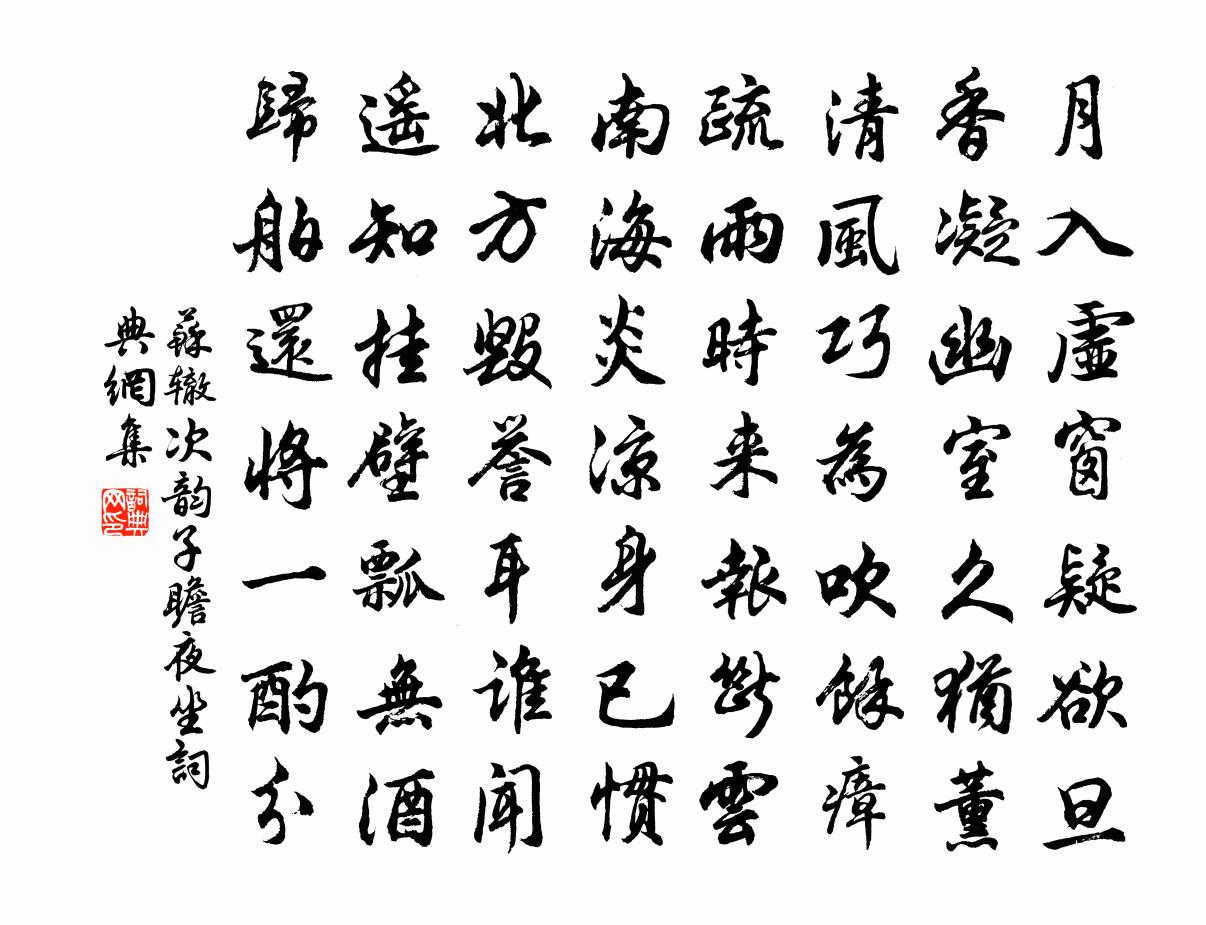 月入虛窗疑欲旦
香凝幽室久猶薰
清風巧為吹餘瘴
疏雨時来報斷雲
南海炎涼身已慣
北方毀誉耳誰聞
遥知挂壁瓢無酒
歸舶還將一酌分
蘇辙次韵子瞻夜坐詞
典網集
詞典
网印